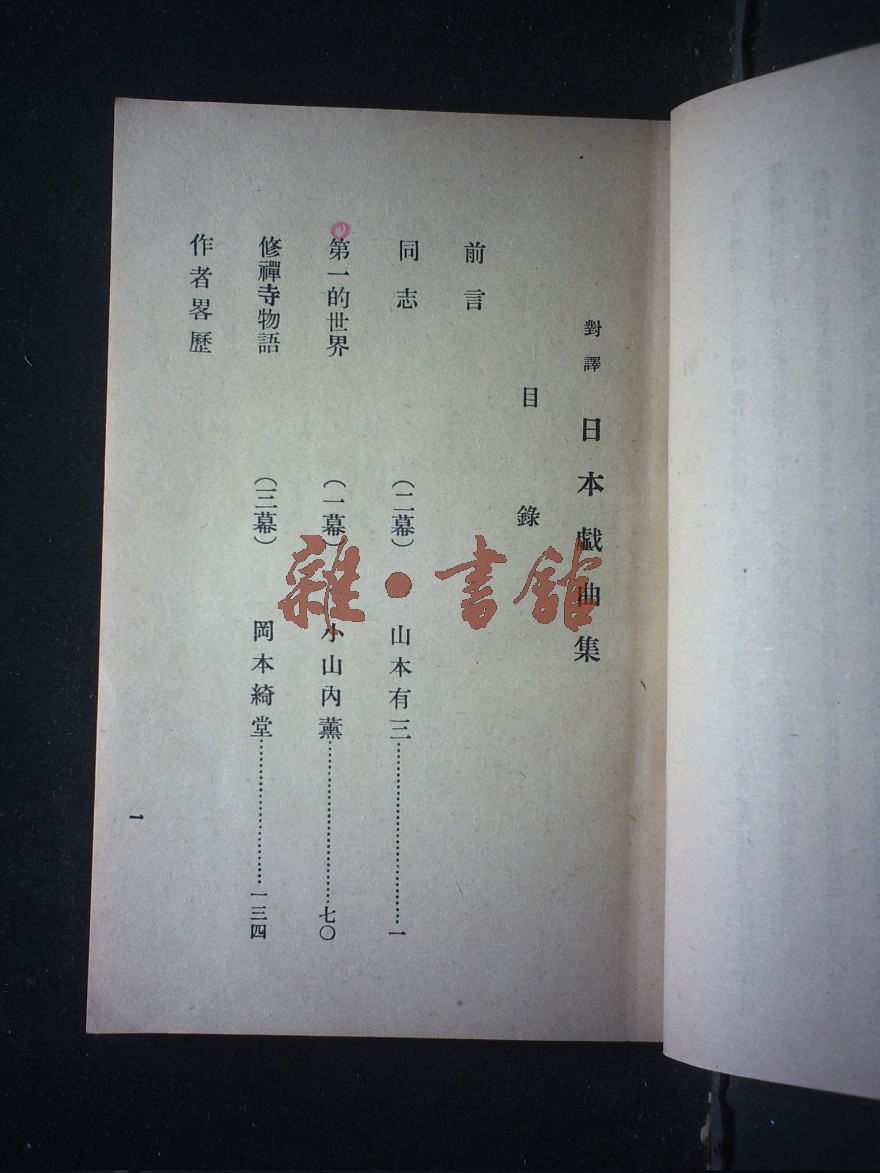 對譯 日本戱曲集
目錄
前言
同志 (二幕) 山本有三……………………一
第一的世界 (一幕) 小山內薰……………………七〇
修禪寺物語 (三幕) 岡本綺堂……………………一三四
作者畧歷
一
雜·書館